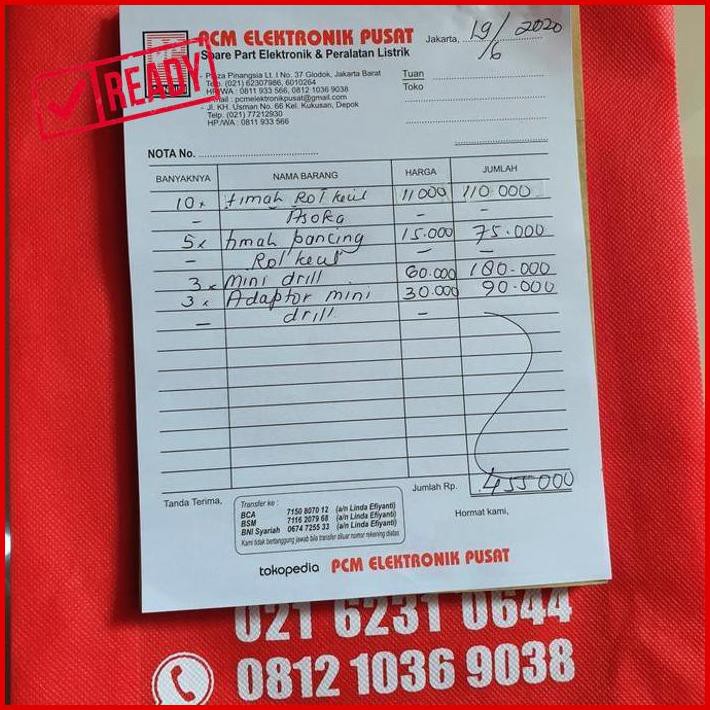 READY
PCM ELEKTRONIK PUSAT
Spare Part Elektronik & Peralatan Listrik
- Plaza Pinangsia Lt. I No. 37 Glodok, Jakarta Barat
Telp. (021) 62307986, 6010264
HP/WA : 0811 933 566, 0812 1036 9038
Email : pcmelektronikpusat@gmail.com
- Jl. KH. Usman No. 66 Kel. Kukusan, Depok
Telp. (021) 77212930
HP/WA : 0811 933 566
Jakarta, 19/6 2020
Tuan
Toko
NOTA No.
BANYAKNYA NAMA BARANG HARGA JUMLAH
10 x timah Rol kecil 11000 110.000
- Asoka - -
5 x timah pancing 15.000 75.000
- Rol kecil - -
3 x Mini drill 60.000 180.000
3 x Adaptor mini 30.000 90.000
- drill -
Jumlah Rp. 455000
Tanda Terima,
Hormat kami,
Transfer ke :
BCA 7150 8070 12 (a/n Linda Efiyanti)
BSM 7116 2079 68 (a/n Linda Efiyanti)
BNI Syariah 0674 7255 33 (a/n Linda Efiyanti)
Kami tidak bertanggung jawab bila transfer diluar nomor rekening diatas
tokopedia PCM ELEKTRONIK PUSAT
021 6231 0644
0812 1036 9038